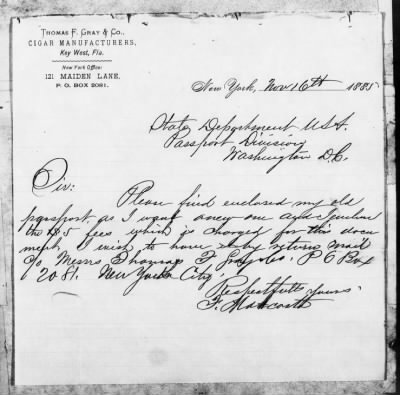 THOMAS F. GRAY & CO.,
CIGAR MANUFACTURERS,
Key West, Fla.
New York Office:
121 MAIDEN LANE,
P. O. BOX 2081.
New York, Nov 16th 1885
State Department U.S.A.
Passport Division
Washington D.C.
Sir:
Please find enclosed my old
passport, as I want a new one and I enclose
the $5 fees which is charged for this docu
ment I wish to have by return mail
c/o Messrs Thomas F Gray & Co. P O Box
2081. New York City,
Respectfully yours.